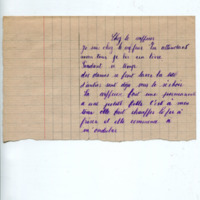 Chez le coiffeur
Je suis chez le coiffeur. En attendant
mon tour je lis un livre.
Pendant ce temps
des dames se font laver la tête
d'autres sont déjà sous le séchoir.
La coiffeuse fait une permanente
à une petite fille. C'est à mon
tour elle fait chauffer le fer à
friser et elle commence à
m'onduler.